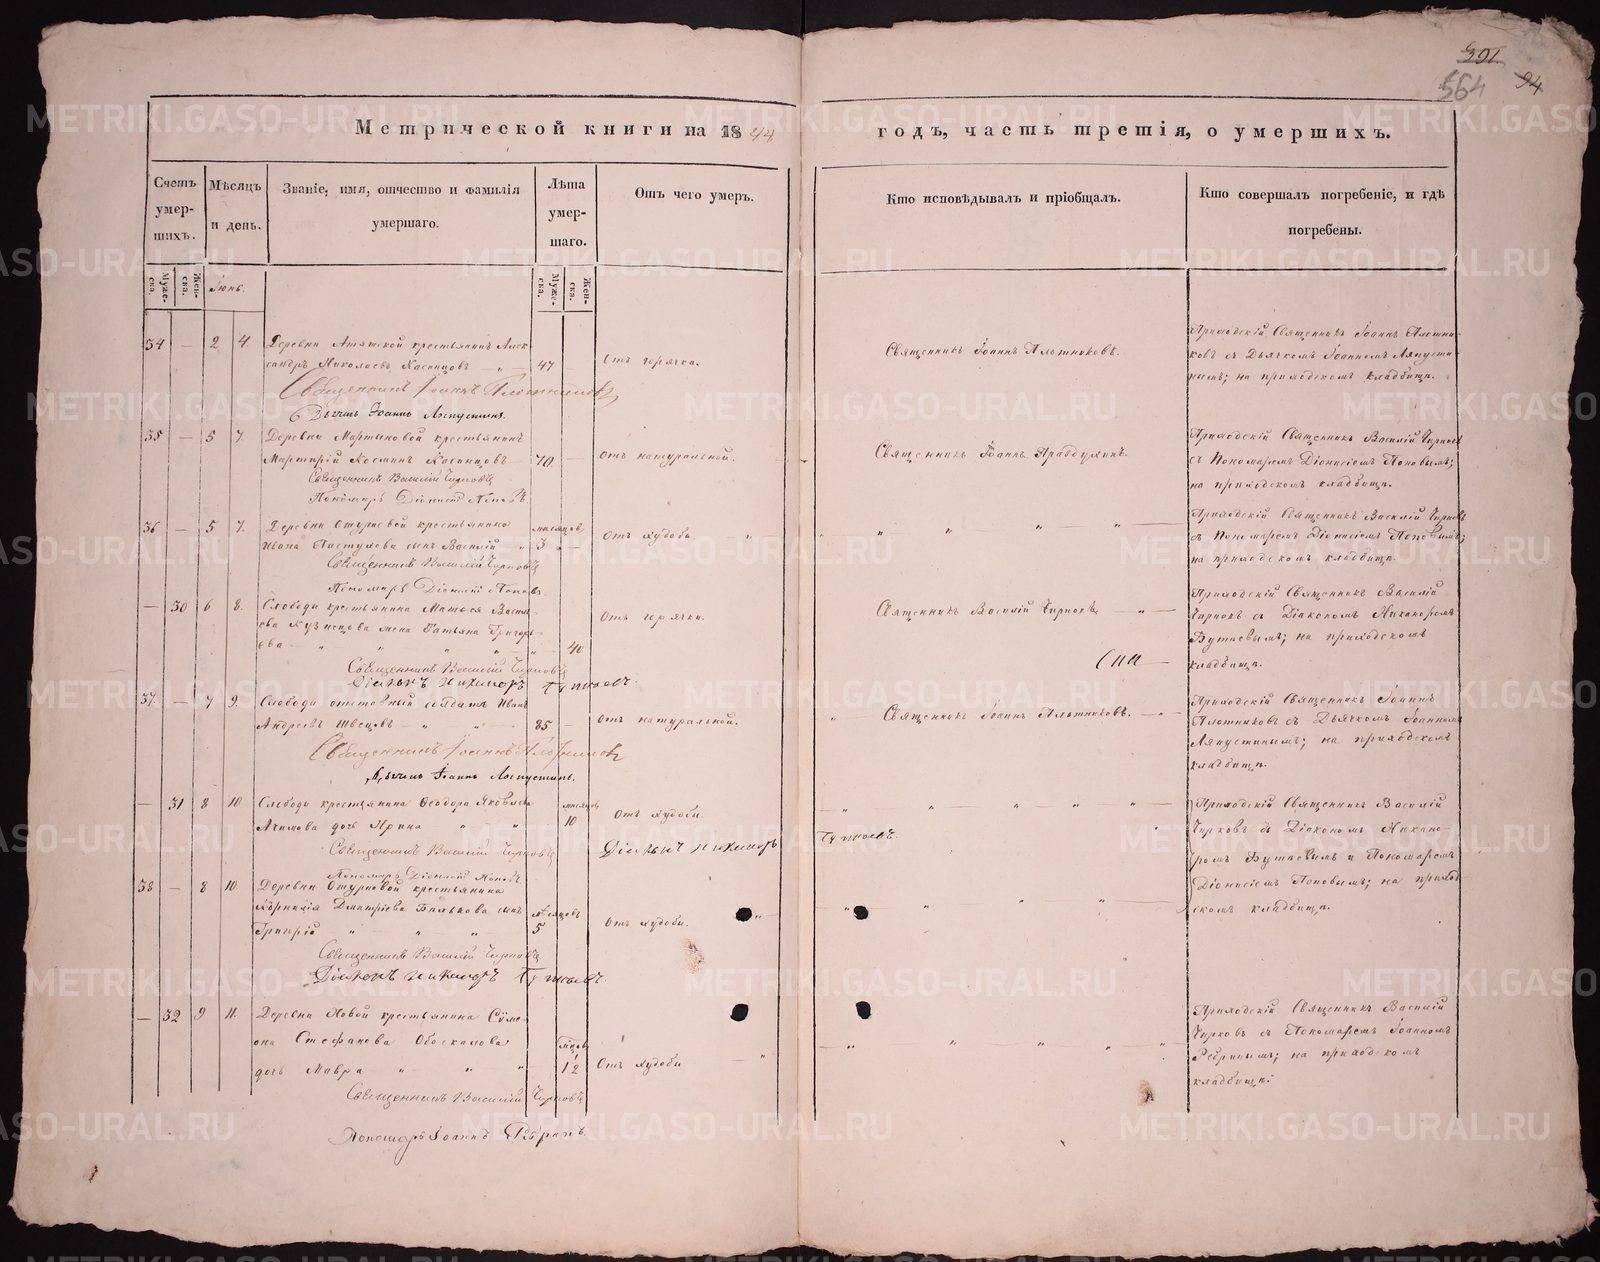 391
564 94
Метрической книги на 1844 годъ, часть третія, о умершихъ.
Счетъ умер-шихъ.
Мѣсяцъ и день.
Званіе, имя, отчество и фамилія умершаго.
Лѣта умер-шаго.
Отъ чего умеръ.
Кто исповѣдывалъ и пріобщалъ.
Кто совершалъ погребеніе, и гдѣ погребены.
Муже-ска.
Жен-ска.
Іюнь.
Муже-ска.
Жен-ска.
34 — 2 4. Деревни крестьянинъ Алек-
сандръ Николаевъ Касинцовъ 47 Отъ горячки.
Священникъ Іоаннъ Плотниковъ.
Приходскій Священникъ Іоаннъ Плотни-
ковъ съ Дьячкомъ Іоанномъ Ляпусти-
нымъ; на приходскомъ кладбищѣ.
Священникъ Іоаннъ Плотниковъ
Дьячекъ Іоаннъ Ляпустинъ.
35 — 5 7. Деревни Мартыновой крестьянинъ
Мартирій Косминъ Касинцовъ 70 Отъ натуральной.
Священникъ Іоаннъ Правдухинъ.
Приходскій Священникъ Василій Чирковъ
съ Пономаремъ Діонисіемъ Поповымъ;
на приходскомъ кладбищѣ.
Священникъ Василій Чирковъ
Пономарь Діонисій Поповъ
36 — 5 7. Деревни крестьянина мѣсяцовъ
Ивана Пастухова сынъ Василій 3 — Отъ худобы
Приходскій Священникъ Василій Чирковъ
съ Пономаремъ Діонисіемъ Поповымъ;
на приходскомъ кладбищѣ.
Священникъ Василій Чирковъ
Пономарь Діонисій Поповъ
— 30 6 8. Слободы крестьянина Матвея Василь-
ева Кузнецова жена Татьяна Григорь-
ева 40 Отъ горячки.
Священникъ Василій Чирковъ
Приходскій Священникъ Василій
Чирковъ съ Діакономъ Никаноромъ
Бутаевымъ; на приходскомъ
кладбищѣ.
Священникъ Василій Чирковъ
Діаконъ Никаноръ
37. — 7 9. Слободы отставный солдатъ Иванъ
Андреевъ Швецовъ 85 — Отъ натуральной.
Священникъ Іоаннъ Плотниковъ.
Приходскій Священникъ Іоаннъ
Плотниковъ съ Дьячкомъ Іоанномъ
Ляпустинымъ; на приходскомъ
кладбищѣ.
Священникъ Іоаннъ Плотниковъ
Дьячекъ Іоаннъ Ляпустинъ.
— 31 8 10. Слободы крестьянина Ѳеодора Яковлева мѣсяцовъ
Ахимова дочь Ирина 10 Отъ худобы.
Приходскій Священникъ Василій
Чирковъ съ Діакономъ Никано-
ромъ Бутаевымъ и Пономаремъ
Діонисіемъ Поповымъ; на приход-
скомъ кладбищѣ.
Священникъ Василій Чирковъ Діаконъ Никаноръ
Пономарь Діонисій Поповъ
38 — 8 10. Деревни крестьянина
Корнилія Дмитріева сынъ мѣсяцовъ
Григорій 5 Отъ худобы.
Священникъ Василій Чирковъ
Діаконъ Никаноръ
— 32 9 11. Деревни Новой крестьянина Симе-
она Стефанова Обоскалова
дочь Мавра 1/2 Отъ худобы
Приходскій Священникъ Василій
Чирковъ съ Пономаремъ Іоанномъ
Ребринымъ; на приходскомъ
кладбищѣ.
Священникъ Василій Чирковъ
Пономарь Іоаннъ Ребринъ.
METRIKI.GASO-URAL.RU